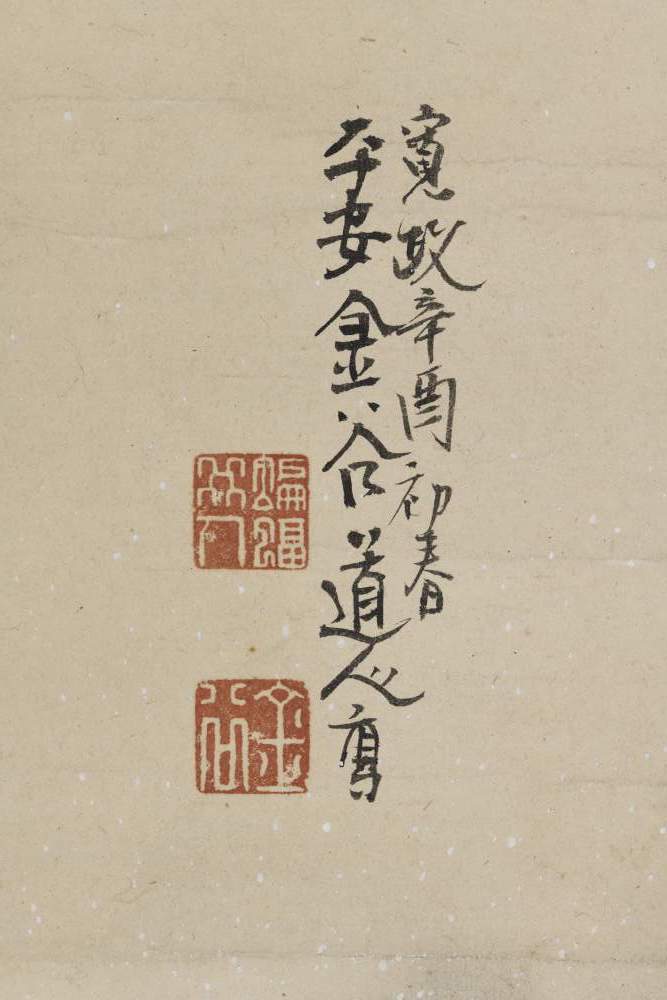 寛政辛酉初春
平安金谷道人寫
蝙蝠
金谷